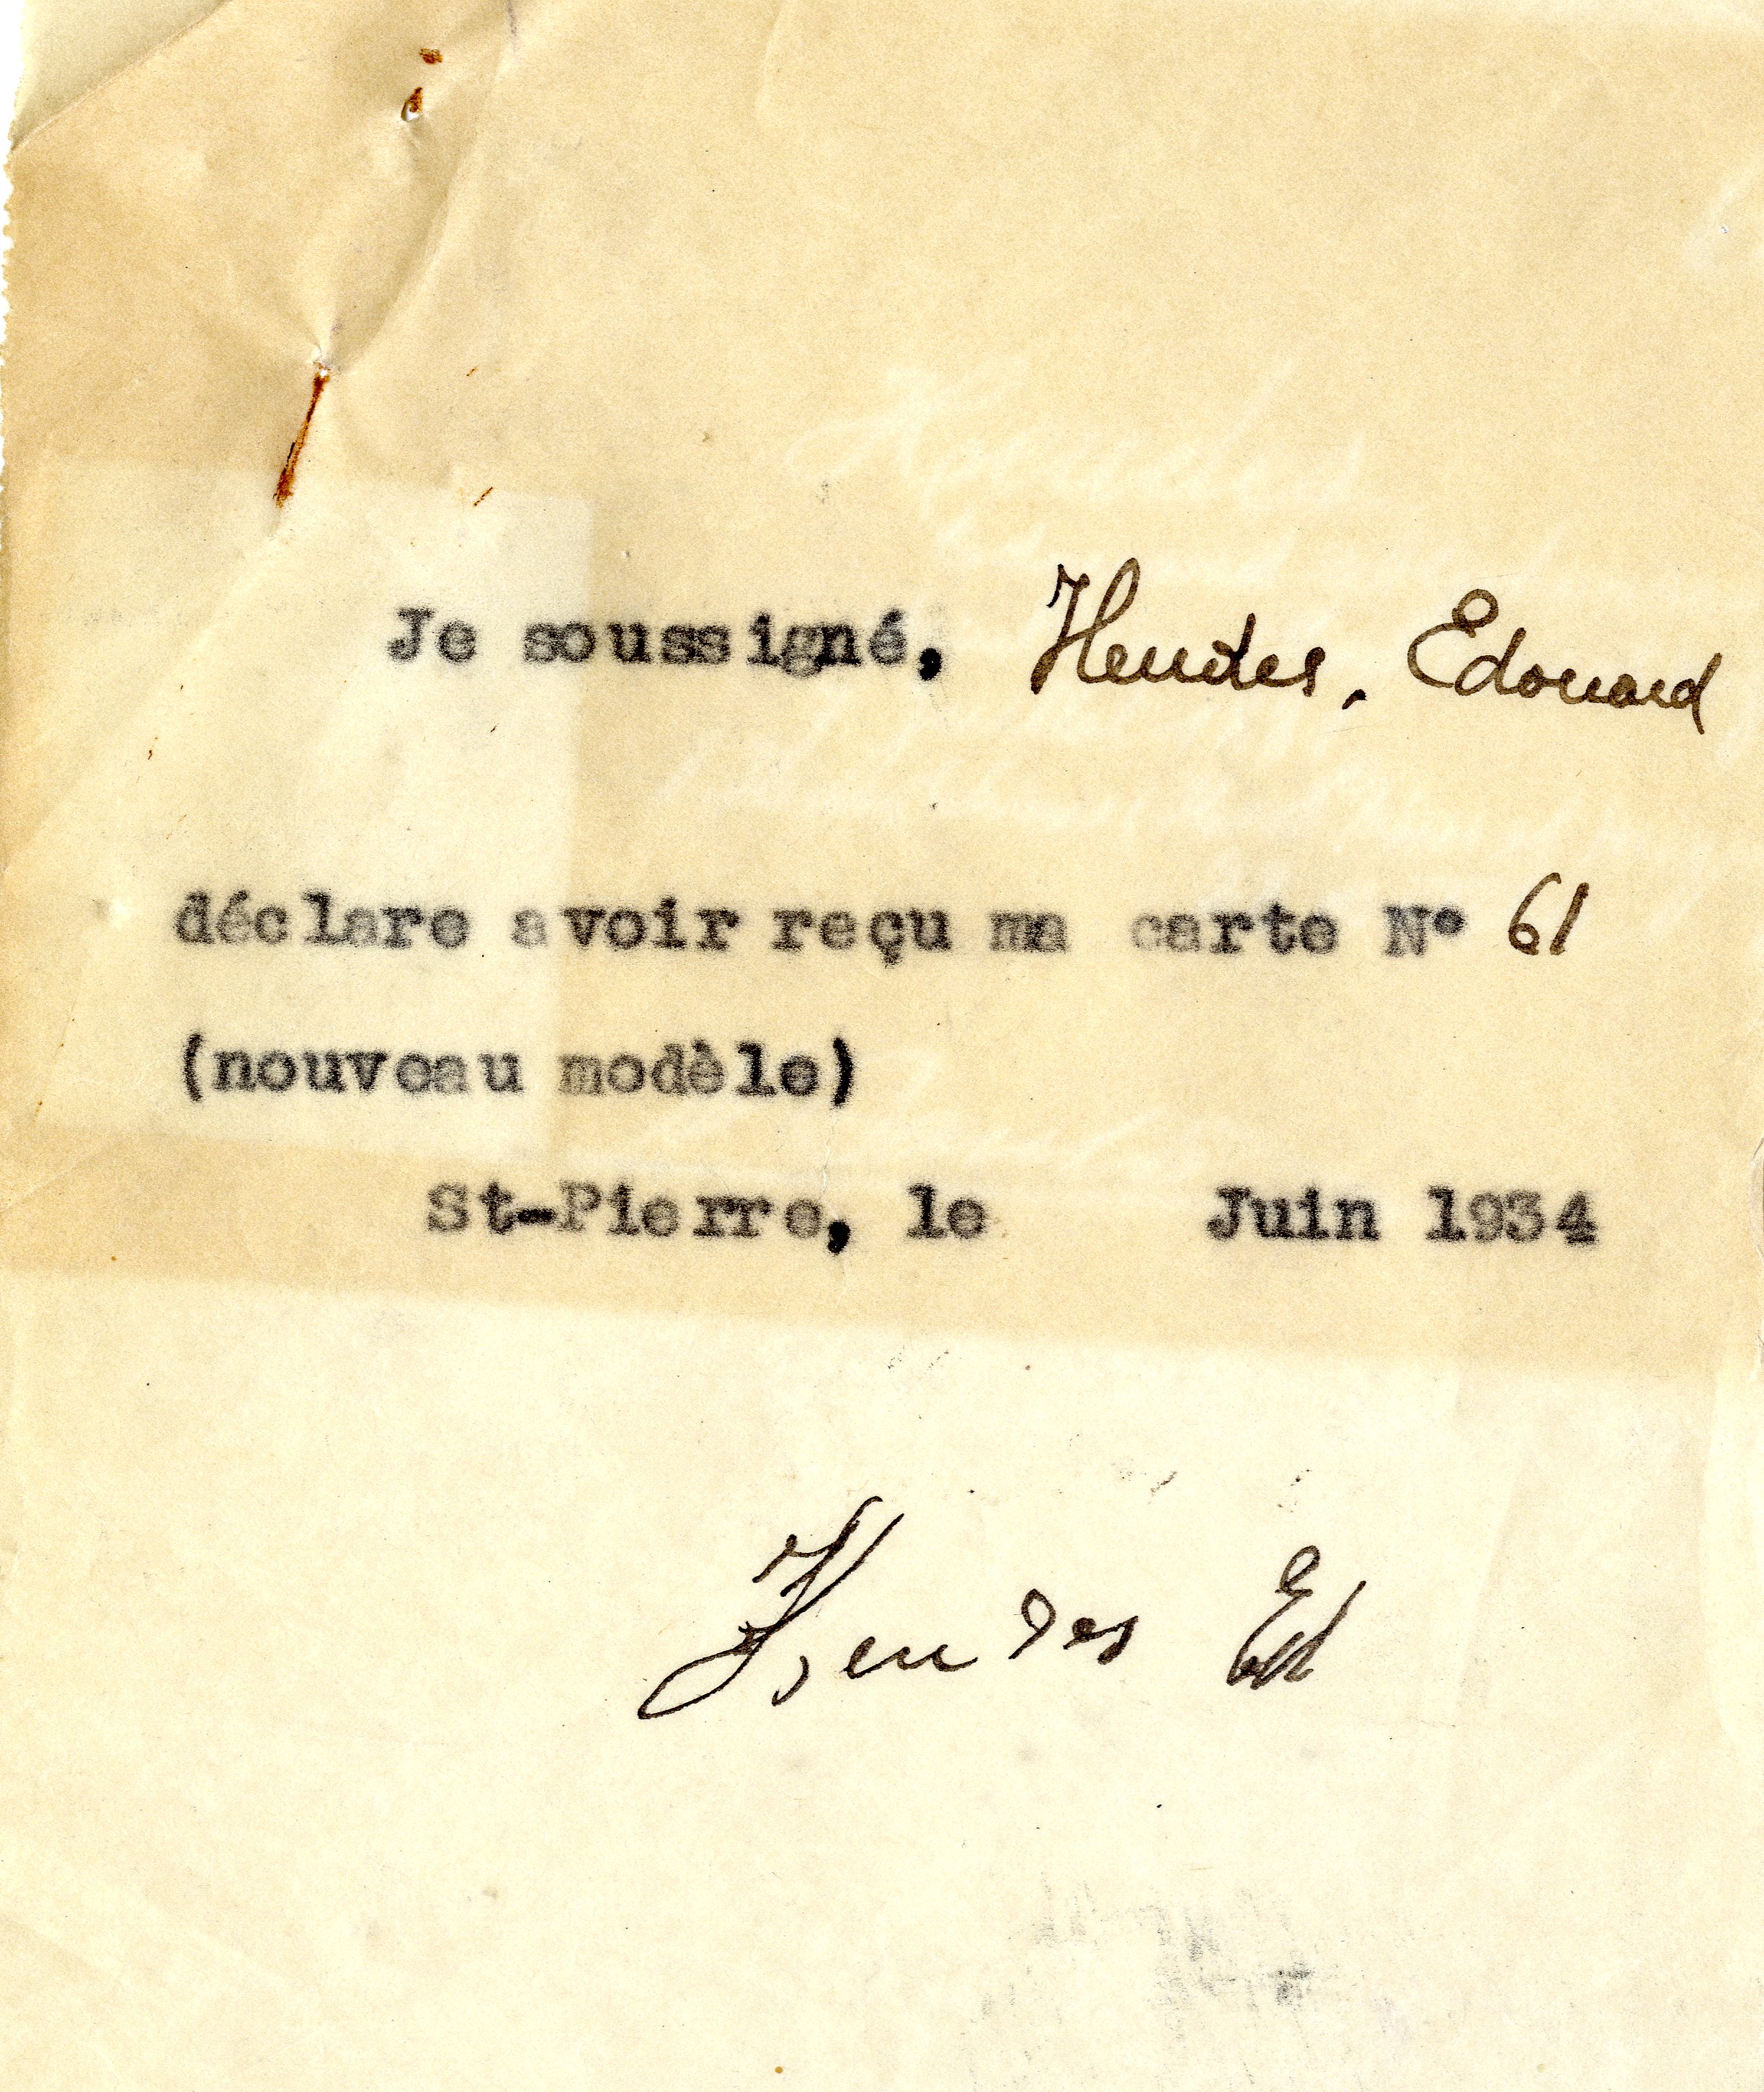 Je soussigné, Heudes. Edouard
déclare avoir reçu ma carte N° 61
(nouveau modèle)
St-Pierre, le Juin 1934
Heudes Ed